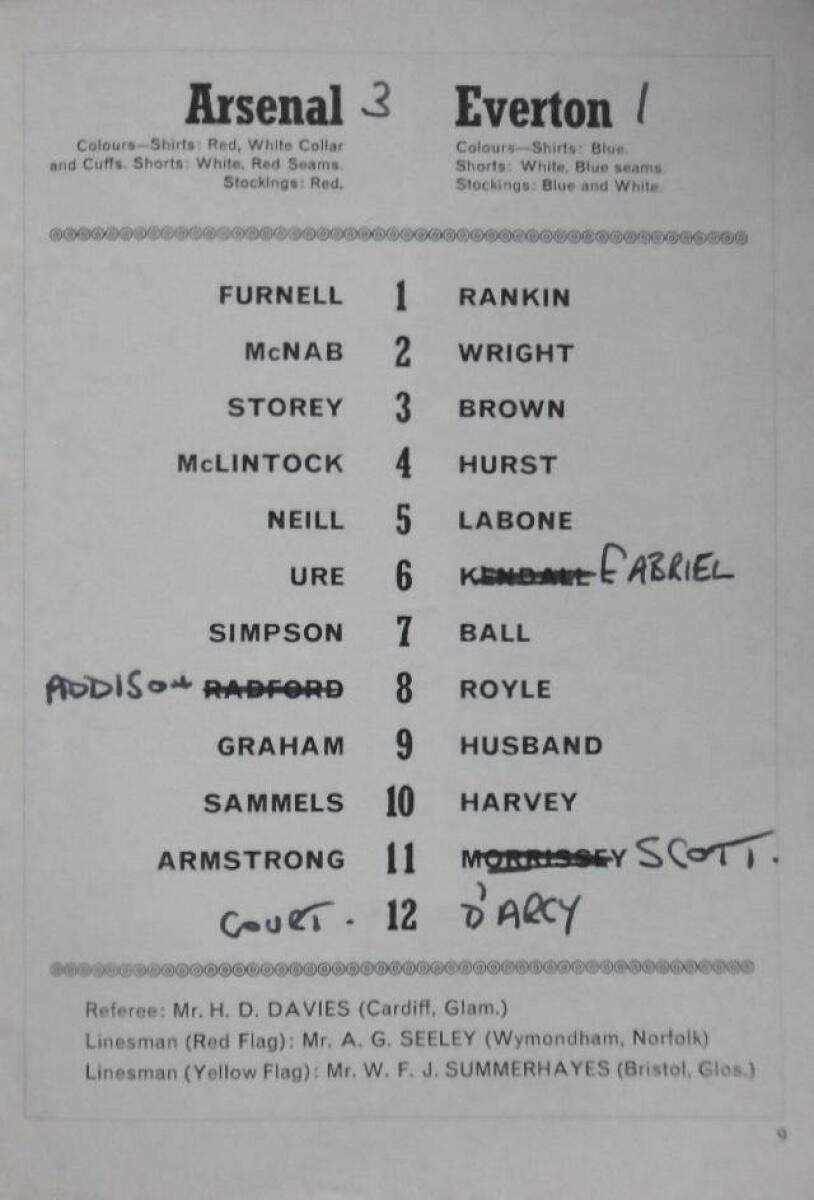 Arsenal 3 Everton 1
Colours—Shirts: Red, White Collar and Cuffs. Shorts: White, Red Seams. Stockings: Red.
Colours—Shirts: Blue. Shorts: White, Blue seams. Stockings: Blue and White.
FURNELL 1 RANKIN
McNAB 2 WRIGHT
STOREY 3 BROWN
McLINTOCK 4 HURST
NEILL 5 LABONE
URE 6 KENDALL GABRIEL
SIMPSON 7 BALL
ADDISON RADFORD 8 ROYLE
GRAHAM 9 HUSBAND
SAMMELS 10 HARVEY
ARMSTRONG 11 MORRISSEY SCOTT.
COURT. 12 D'ARCY
Referee: Mr. H. D. DAVIES (Cardiff, Glam.)
Linesman (Red Flag): Mr. A. G. SEELEY (Wymondham, Norfolk)
Linesman (Yellow Flag): Mr. W. F. J. SUMMERHAYES (Bristol, Glos.)
9